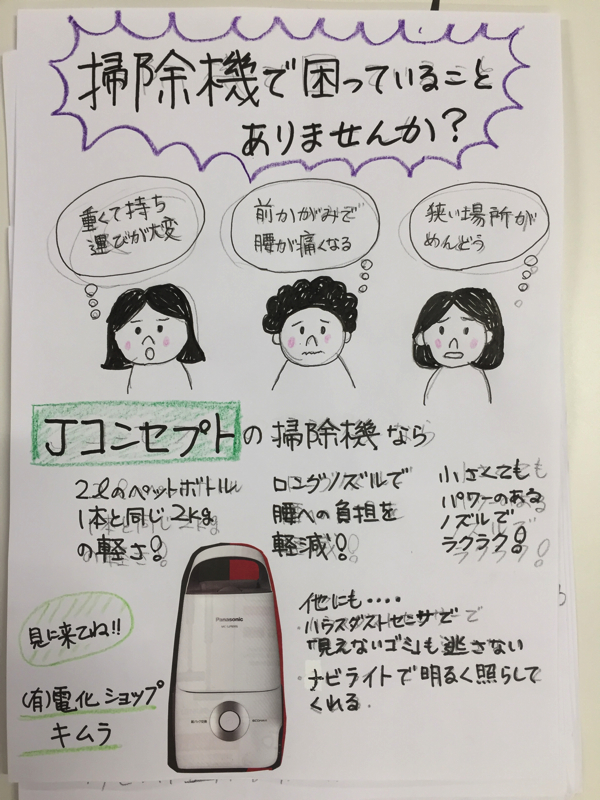 掃除機で困っていること
ありませんか?
重くて持ち
運びが大変
前かがみで
腰が痛くなる
狭い場所が
めんどう
Jコンセプトの掃除機なら
2ℓのペットボトル
1本と同じ2kg
の軽さ!
ロングノズルで
腰への負担を
軽減!
小さくても
パワーのある
ノズルで
ラクラク!
他にも・・・・
・ハウスダストセンサで
「見えないゴミ」も逃さない
・ナビライトで明るく照らして
くれる.
Panasonic
見に来てね!!
(有)電化ショップ
キムラ